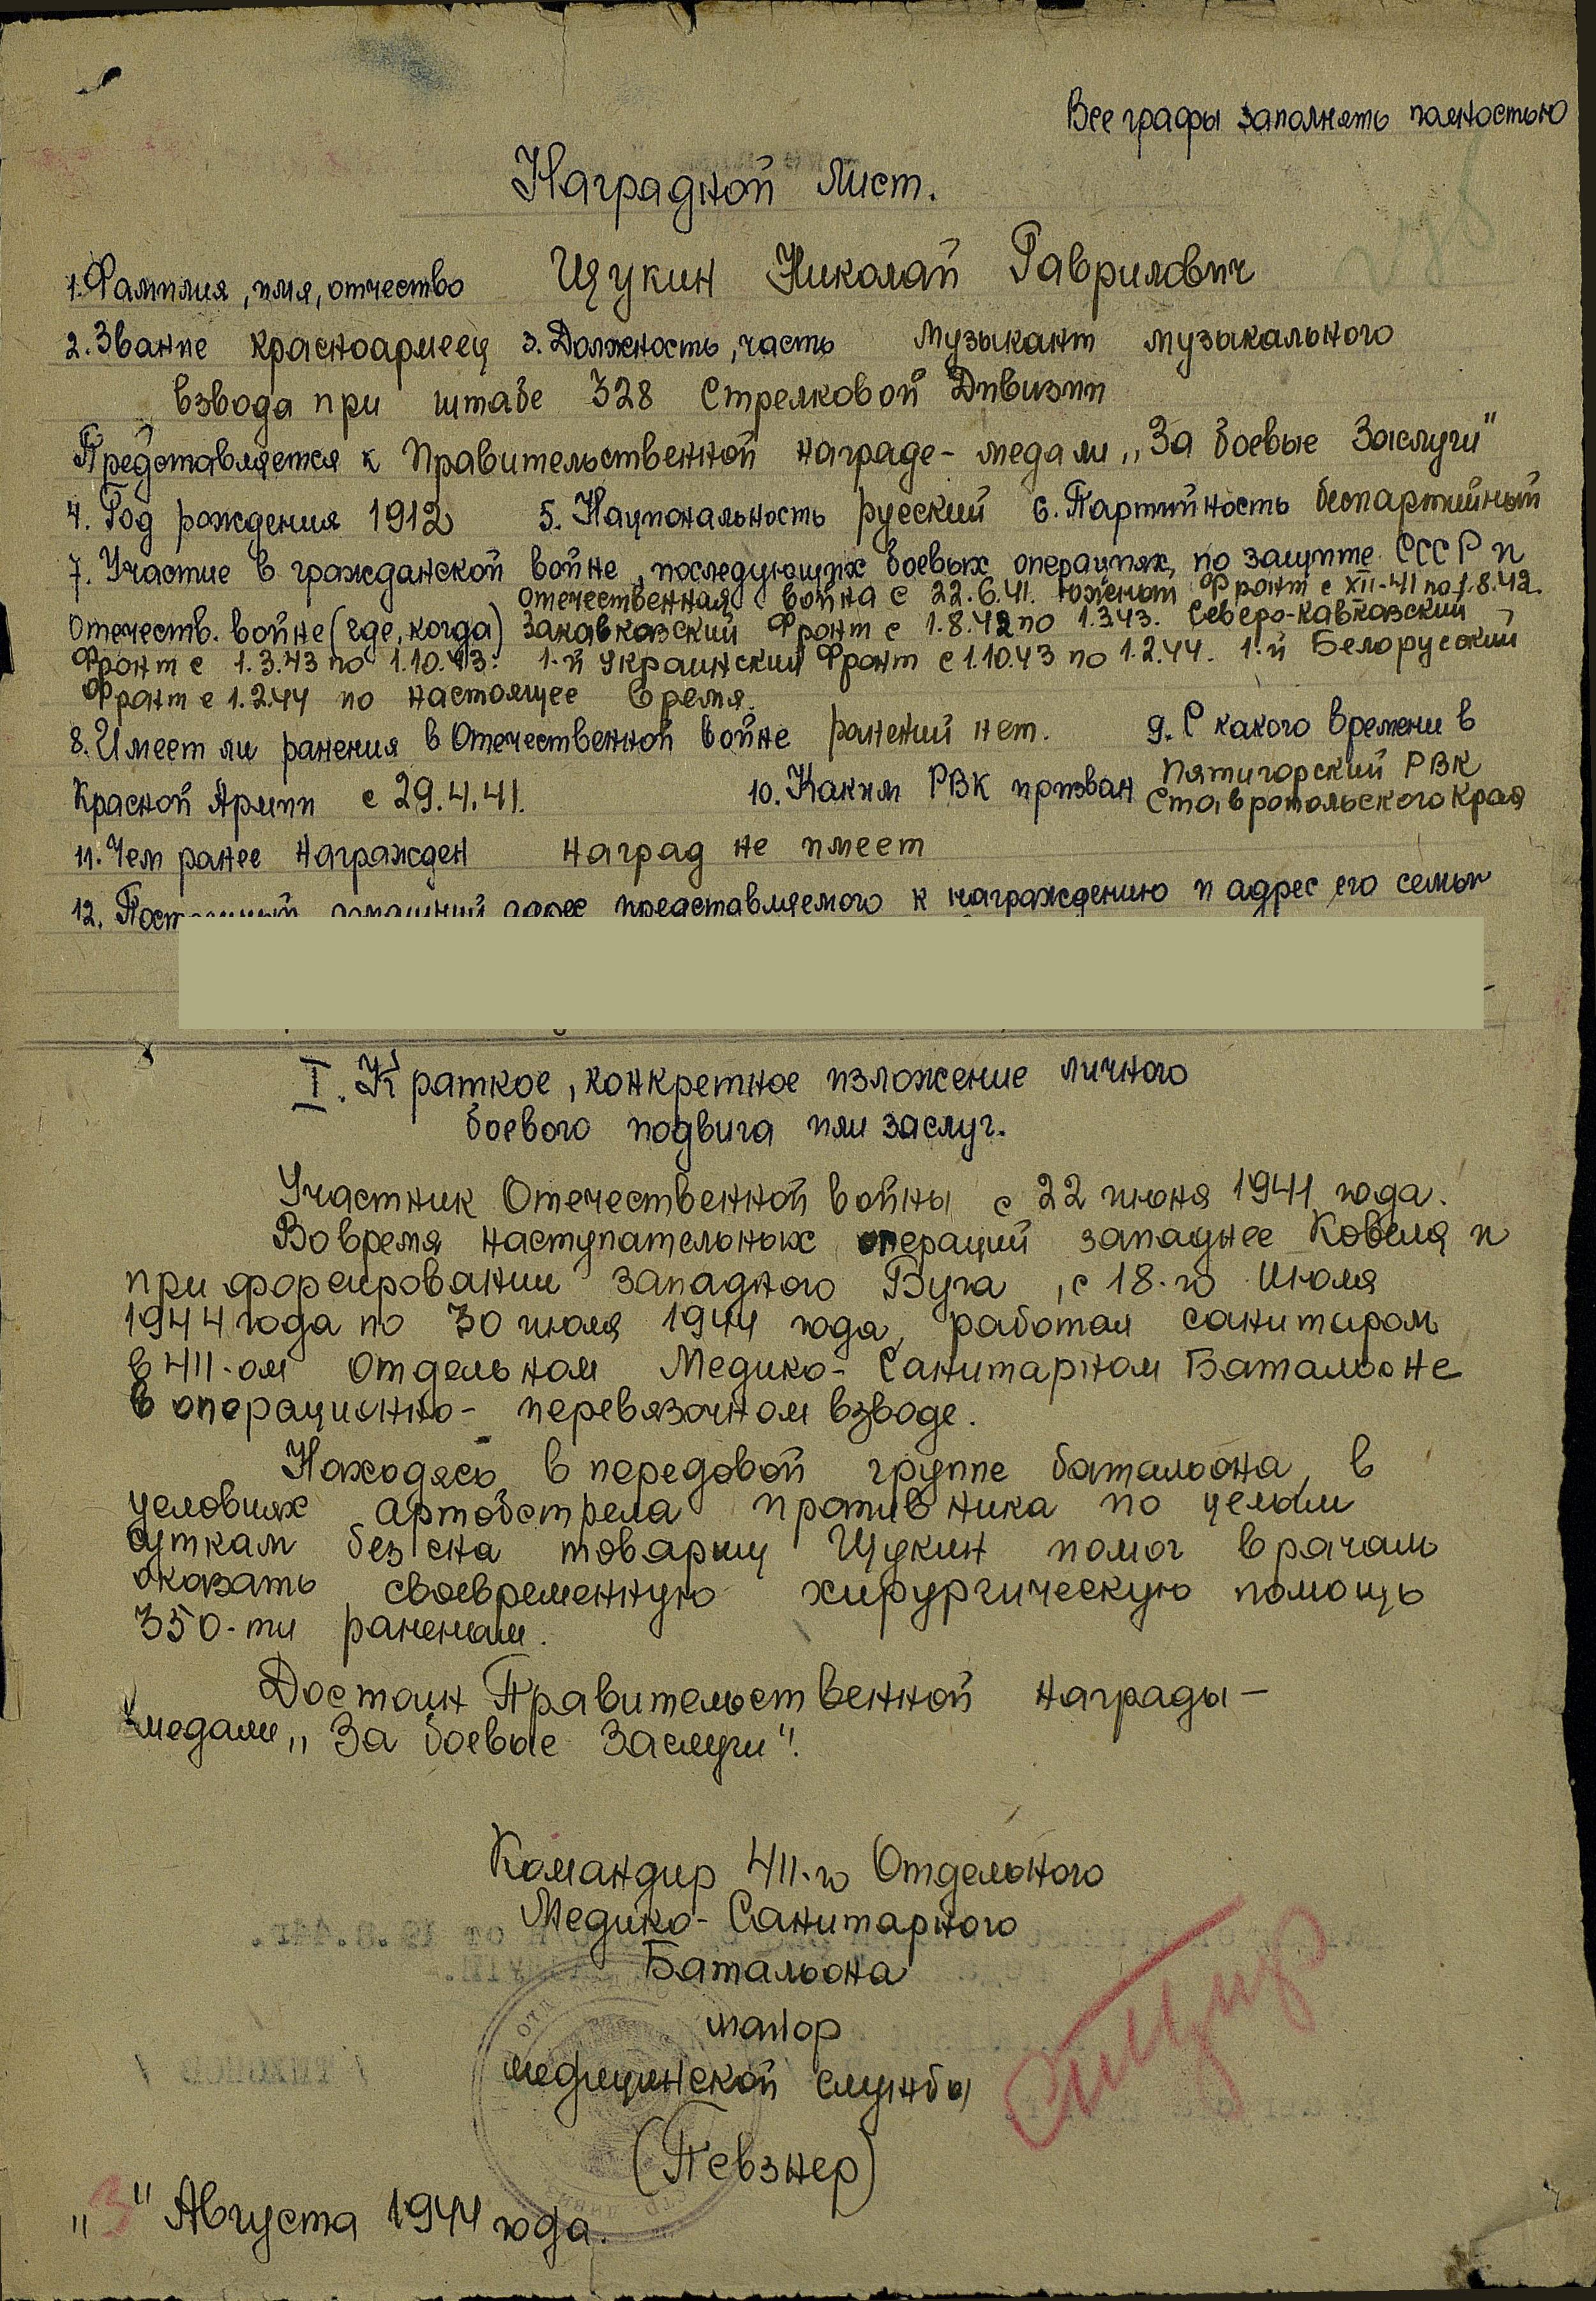 Все графы заполнять полностью
Наградной лист.
1. Фамилия, имя, отчество Щукин Николай Гаврилович
2. Звание красноармеец 3. Должность, часть музыкант музыкального
взвода при штабе 328 Стрелковой Дивизии
Представляется к Правительственной награде - медали „За боевые Заслуги"
4. Год рождения 1912 5. Национальность русский 6. Партийность беспартийный
7. Участие в гражданской войне, последующих боевых операциях, по защите СССР и
отечественная война с 22.6.41. Южный Фронт с XII-41 по 1.8.42.
Отечеств. войне (где, когда) Закавказский Фронт с 1.8.42 по 1.3.43. Северо-Кавказский
Фронт с 1.3.43 по 1.10.43. 1-й Украинский Фронт с 1.10.43 по 1.2.44. 1-й Белорусский
Фронт с 1.2.44 по настоящее время.
8. Имеет ли ранения в Отечественной войне ранений нет. 9. С какого времени в
Красной Армии с 29.4.41. 10. Каким РВК призван Пятигорский РВК
Ставропольского Края
11. Чем ранее награжден наград не имеет
12. домашний адрес представляемого к награждению и адрес его семьи
I. Краткое, конкретное изложение личного
боевого подвига или заслуг.
Участник Отечественной войны с 22 июня 1941 года.
Вовремя наступательных операций западнее Ковеля и
при форсировании Западного Буга, с 18-го Июля
1944 года по 30 июля 1944 года, работал санитаром
в 411-ом Отдельном Медико-Санитарном Батальоне
в операционно-перевязочном взводе.
Находясь в передовой группе батальона, в
условиях артобстрела противника по целым
суткам без сна товарищ Щукин помог врачам
оказать своевременную хирургическую помощь
350-ти раненым.
Достоин Правительственной награды -
медали „За боевые Заслуги".
Командир 411-го Отдельного
Медико-Санитарного
Батальона
майор
медицинской службы
(Певзнер)
„3" Августа 1944 года.